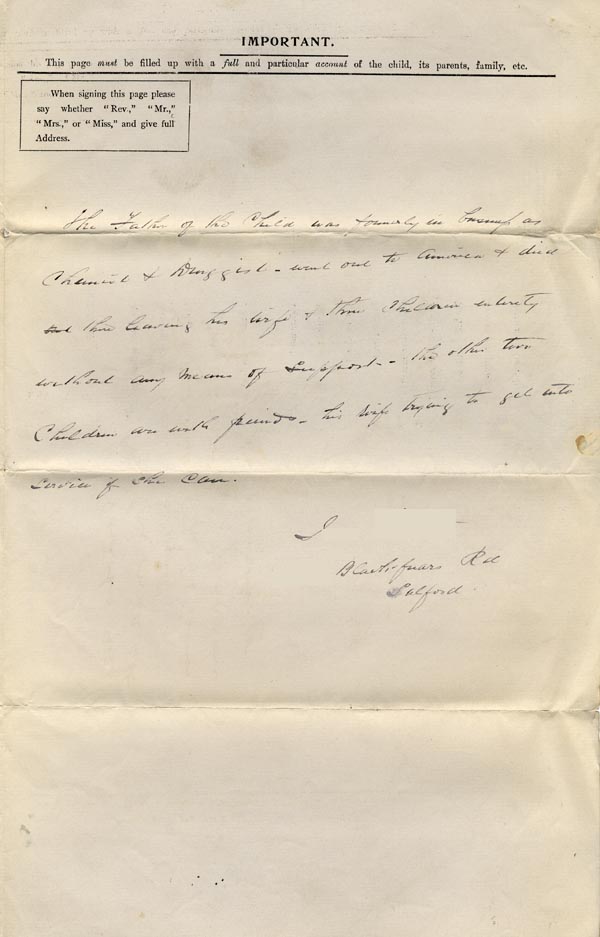 IMPORTANT.
This page must be filled up with a full and particular account of the child, its parents, family, etc.
When signing this page please
say whether "Rev.," "Mr.,"
"Mrs.," or "Miss," and give full
Address.
The Father of the Child was formerly in business as
Chemist & Druggist - went out to America & died
there leaving his wife & three Children entirely
without any means of Support - the other two
Children are with friends - his wife trying to get into
service if she can.
J
Blackfriars Rd
Salford